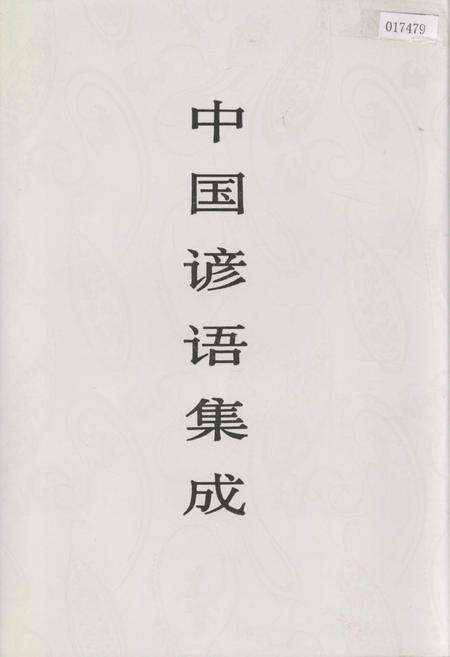 017479
中国谚语集成